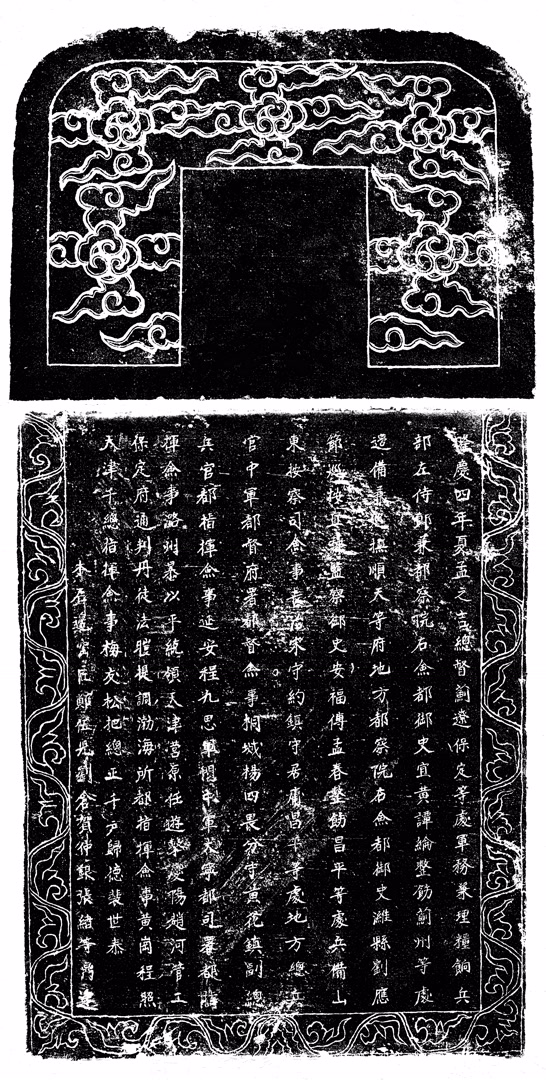 隆慶四年夏孟之吉總督薊遼保定等處軍務兼理糧餉兵
部左侍郎兼都察院右僉都御史宜黃譚綸整飭薊州等處
邊備兼巡撫順天等府地方都察院右僉都御史濰縣劉應
節巡按直隸監察御史安福傅孟春整飭昌平等處兵備山
東按察司僉事宋守約鎮守居庸昌平等處地方總兵
官中軍都督府署都督僉事桐城楊四畏分守黃花鎮副總
兵官都指揮僉事延安程九思中軍大寧都司署都指
揮僉事潞州暴以平統領天津營游擊慶陽趙河管工
保定府通判丹徒法程提調渤海所都指揮僉事黃岡程照
天津千總指揮僉事梅友松把總正千戶歸德裴世泰
劉倉賀仲銀張結等鐫建